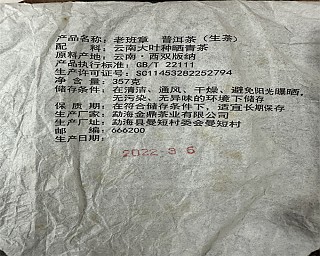 产品名称：老班章 普洱茶（生茶）
配 料：云南大叶种晒青茶
原料产地：云南·西双版纳
产品执行标准：GB/T 22111
生产许可证号：SC11453282252794
净 含 量：357克
储存条件：在清洁、通风、干燥、避免阳光曝晒，
无污染、无异味的环境下储存
保 质 期：在符合储存条件下，适宜长期保存
生产厂家：勐海金鼎茶业有限公司
生产厂址：勐海县曼短村委会曼短村
邮 编：666200
生产日期：
2022 9 6